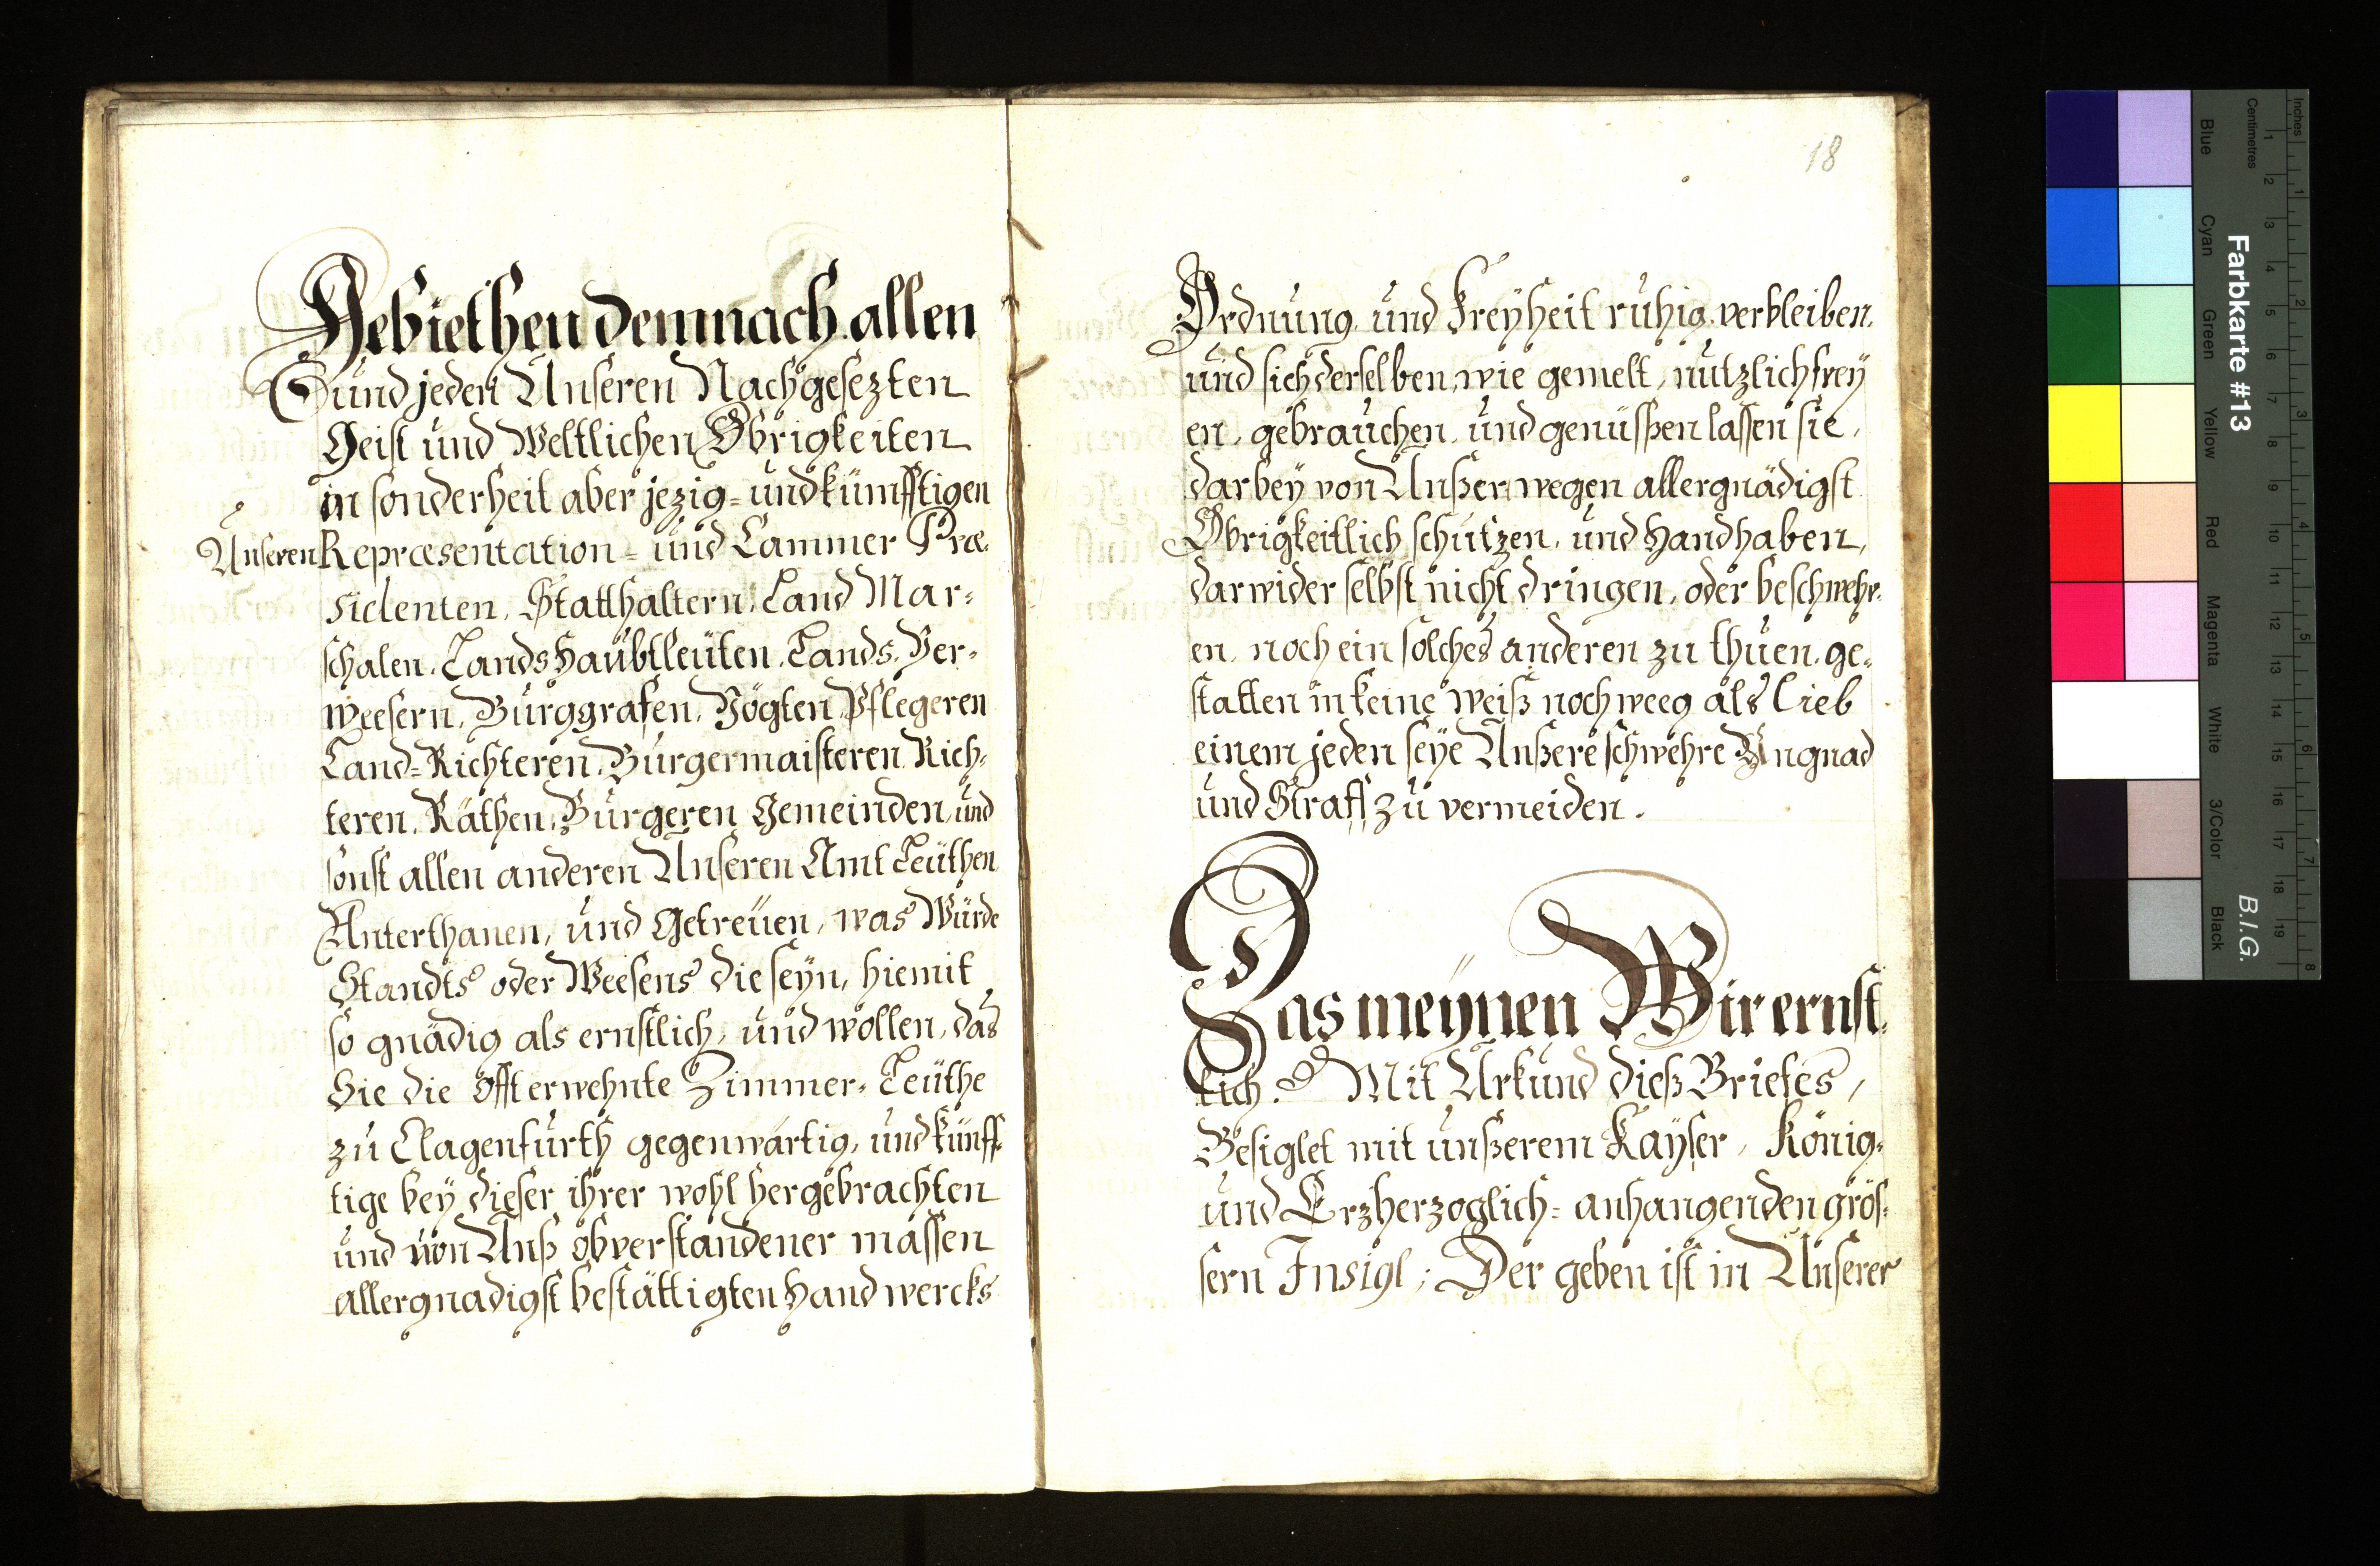 Gebiethen demnach allen
und jeden Unseren Nachgesezten
Geist und Weltlichen Obrigkeiten
in sonderheit aber jezig= und künfftigen
Unseren Repræsentation= und Cammer Præ=
sidenten, Statthaltern, Land Mar=
schalen, Lands Haubtleüten, Lands Ver=
weesern, Burggrafen, Vögten, Pflegeren
Land=Richteren, Burgermaisteren, Rich=
teren, Räthen, Burgeren, Gemeinden, und
sonst allen anderen Unseren Amt Leüthen
Unterthanen, und Getreüen, was Würde
Standts oder Weesens die seyn, hiemit
so gnädig als ernstlich, und wollen, das
Sie die offt erwehnte Zimmer=Leüthe
zu Clagenfurth gegenwärtig, und künff=
tige bey dieser ihrer wohl hergebrachten
und von Unß obverstandener massen
allergnadigst bestättigten Handwercks
18
Ordnung und Freyheit ruhig verbleiben,
und sich derselben, wie gemelt, nutzlich frey
en, gebrauchen, und genüssen lassen sie,
darbey von Unßer wegen allergnädigst
Obrigkeitlich schutzen, und Handhaben,
darwider selbst nicht dringen, oder beschwehr=
en, noch ein solches anderen zu thuen, ge=
statten in keine weiß noch weeg als lieb
einem jeden seye Unßere schwehre Ungnad
und Straff zu vermeiden.
Das meynen Wir ernst=
lich. Mit Urkund dieß Briefes,
Besiglet mit unßerem Kayser, König=
und Erzherzoglich= anhangenden grös=
sern Insigl; Der geben ist in Unserer
Farbkarte #13
B.I.G.
Inches
Centimetres
1 2 3 4 5 6 7 8
1 2 3 4 5 6 7 8 9 10 11 12 13 14 15 16 17 18 19
Blue
Cyan
Green
Yellow
Red
Magenta
White
3/Color
Black